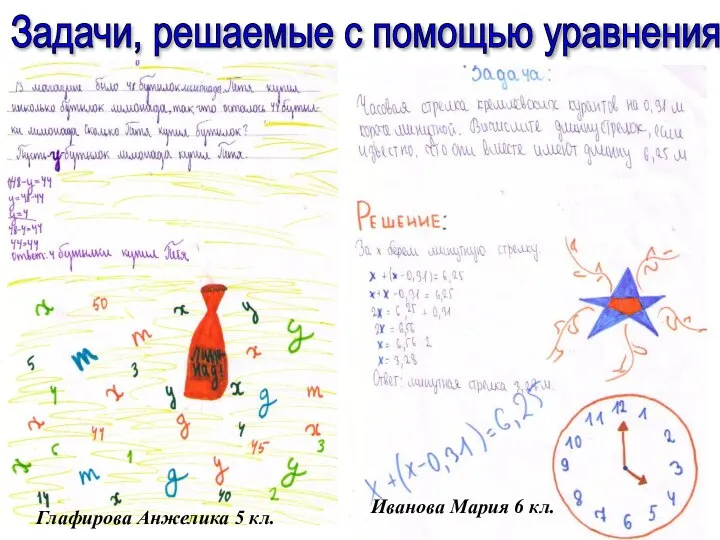 Задачи, решаемые с помощью уравнения
В магазине было 48 бутылок лимонада. Петя купил
несколько бутылок лимонада, так что осталось 44 бутыл-
ки лимонада. Сколько Петя купил бутылок?
Пусть у бутылок лимонада купил Петя.
48-у=44
у=48-44
у=4
48-4=44
44=44
Ответ: 4 бутылки купил Петя
х 50 х у у
5 т т х
ч х 3 у х д т
х 41 д 4 х
6 1 45 3
т д у
14 у 40 2
Лимо-
над!
Глафирова Анжелика 5 кл.
Задача:
Часовая стрелка кремлевских курантов на 0,31 м
короче минутной. Вычислите длину стрелок, если
известно, что они вместе имеют длину 6,25 м
Решение:
За х берем минутную стрелку
х + (х - 0,31) = 6,25
х + х - 0,31 = 6,25
2х = 6,25 + 0,31
2х = 6,56
х = 6,56 2
х = 3,28
Ответ: минутная стрелка 3,28 м.
х + (х - 0,31) = 6,25
12 1 2 3 4 5 6 7 8 9 10 11
Иванова Мария 6 кл.